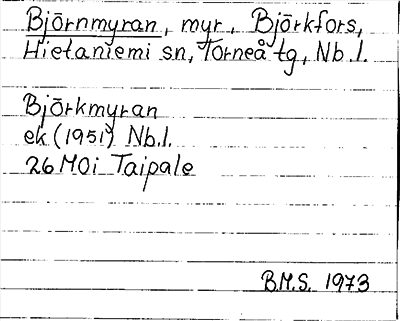 Björnmyran, myr, Björkfors,
Hietaniemi sn, Torneå tg, Nb.l.
Björkmyran
ek (1951) Nb.l.
26 M0i Taipale
B.M.S. 1973